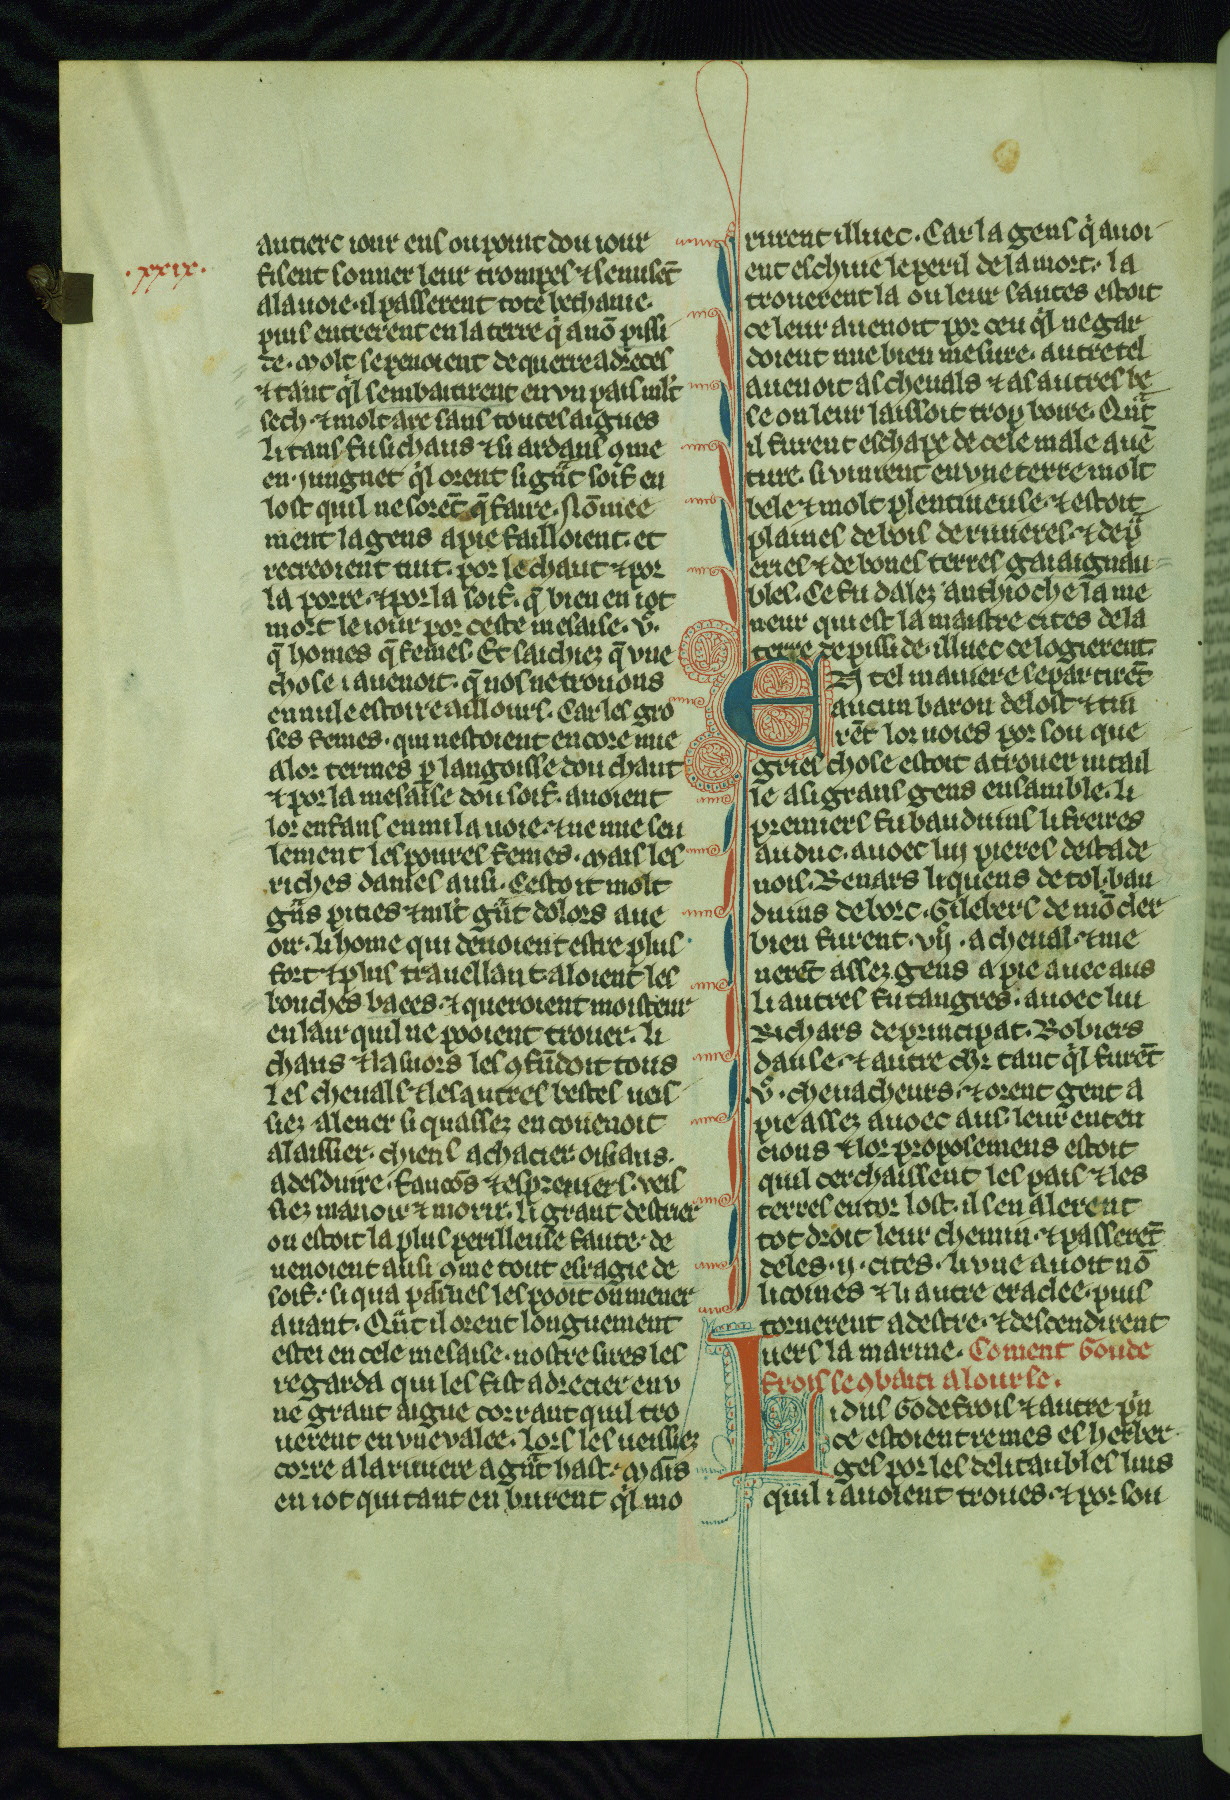 .xxix.
autierc iour ens ou point dou iour
fisent sonner leur trompes ⁊ se misẽt
a la uoie. il passerent tote bethanie.
puis entrerent en la terre q̃ a nõ pissi
de. molt se penoient de querre adreces
⁊ tant qͥl senbatirent en vn pais mlt'
sech. ⁊ molt are sans toutes aigues
li tans fu si chaus ⁊ si ardans 9me
en iunguet qͥl orent si gñt soif en
lost quil ne sorẽt q̃ faire. nõmee
ment la gens a pie failloient. et
recreoient tuit. por le chaut ⁊ por
la porre. ⁊ por la soif. q̃ bien en iot
mort le iour por ceste mesaise. v.ͨ
q̃ homes q̃ femes. Et saichiez q̃ vne
chose i auenoit. q̃ nos ne trouons
en nule estoire aillours. Car les gro
ses femes. qui nestoient encore mie
a lor termes ꝑ langoisse dou chaut
⁊ por la mesaise dou soif. auoient
lor enfans enmi la uoie. ⁊ ne mie seu
lement les poures femes. mais les
riches dames ausi. Cestoit molt
gñs pities ⁊ mlt' gñt dolors a ue
oir. li home qui deuoient estre plus
fort ⁊ plus trauellant. aloient les
bouches baees. ⁊ queroient moisteur
en lair quil ne pooient trouer. li
chaus ⁊ la suors les 9fũdoit tous
Les cheuals ⁊ les autres bestes ueis
siez alener si quassez en couenoit
a laissier. chiens a chacier. oisiaus.
a desduire. faucõs ⁊ espreuiers. veis
siez manoir ⁊ morir. li grant destrier
ou estoit la plus perilleuse faute. de
uenoient ausi 9me tout esragie de
soif. si qua paines les pooit on mener
auant. Qñt il orent longuement
estei en cele mesaise. nostre sires les
regarda qui les fist adrecier en v
ne grant aigue corrant quil tro
uerent en vne valee. Lors les ueissiez
corre a la riuiere a gñt hast. mais
en iot qui tant en burent qͥl mo
rurent illuec. Car la gens qͥ auoi
ent eschiue le peril de la mort. la
trouerent la ou leur santes estoit
ce leur auenoit por ceu qͥl ne gar
doient mie bien mesure. autretel
auenoit as cheuals ⁊ as autres be
se on leur laissoit trop boire. Qñt
il furent eschape de cele male auẽ
ture. si vinrent en vne terre molt
bele ⁊ molt plentiueuse. ⁊ estoit
plaines de bois de riuieres. ⁊ de pͣ
eries ⁊ de bones terres gaiaignau
bles. Ce fu dalez anthioche la me
neur qui est la maistre cites de la
terre de pissi de. illuec ce logierent.
En tel maniere se partirẽt
aucun baron de lost ⁊ tin
rẽt lor uoies por son que
gries chose estoit a trouer uitail
le a si grans gens ensamble. li
premiers fu bauduins li freires
au duc. auoec lui pieres destade
nois. Renars li quens de tol. bau
duins de borc. Gilebers de mõ cler
bien furent. vij.ͨ a cheual. ⁊ me
nerẽt assez gens a pie auec aus
li autres fu tangres. auoec lui
Richars de principat. Robiers
danse. ⁊ autre chr̃. tant qͥl furẽt
v.ͨ cheuacheurs. ⁊ orent gent a
pie assez auoec aus. leur enten
cions ⁊ lor proposemens estoit
quil cerchaissent les pais ⁊ les
terres entor lost. il sen alerent
tot droit leur chemin. ⁊ passerẽt
deles .ij. cites. li vne auoit nõ
licoines ⁊ li autre eraclee. puis
tornerent a destre. ⁊ descendirent
uers la marine. Coment Goude
frois se 9bati a lourse.
Li dus Godefrois ⁊ autre pͥn
ce estoient remes es herber
ges por les delitaubles lius
quil i auoient troues. ⁊ por son